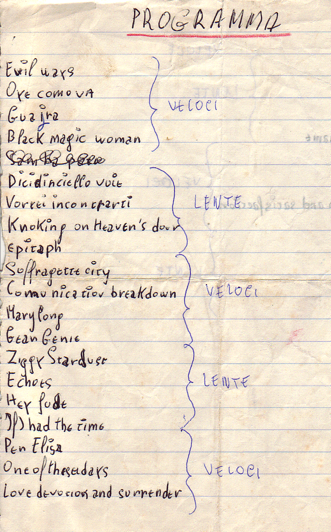 PROGRAMMA
Evil ways
Oye como VA
Guajra
VELOCI
Black magic woman
Dicidincello vuie
Vorrei incontrarti
LENTE
Knoking on Heaven's door
Epitaph
Suffragette city
Communication breakdown
VELOCI
Mary long
Gean Genie
Ziggy Stardust
Echoes
LENTE
Hey Jude
If I had the time
Per Elisa
One of these days
VELOCI
Love devocion and surrender